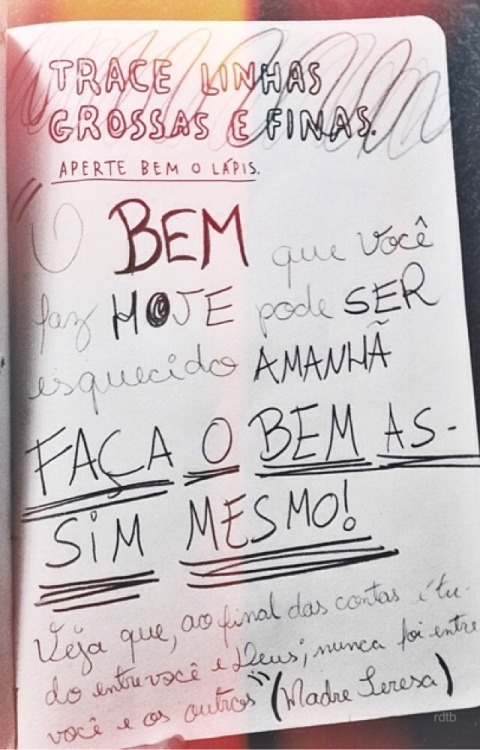 TRACE LINHAS
GROSSAS E FINAS.
APERTE BEM O LÁPIS.
"O BEM que você
faz HOJE pode SER
esquecido AMANHÃ
FAÇA O BEM AS-
SIM MESMO!
Veja que, ao final das contas é tu-
do entre você e Deus; nunca foi entre
você e os outros" (Madre Teresa)
rdtb